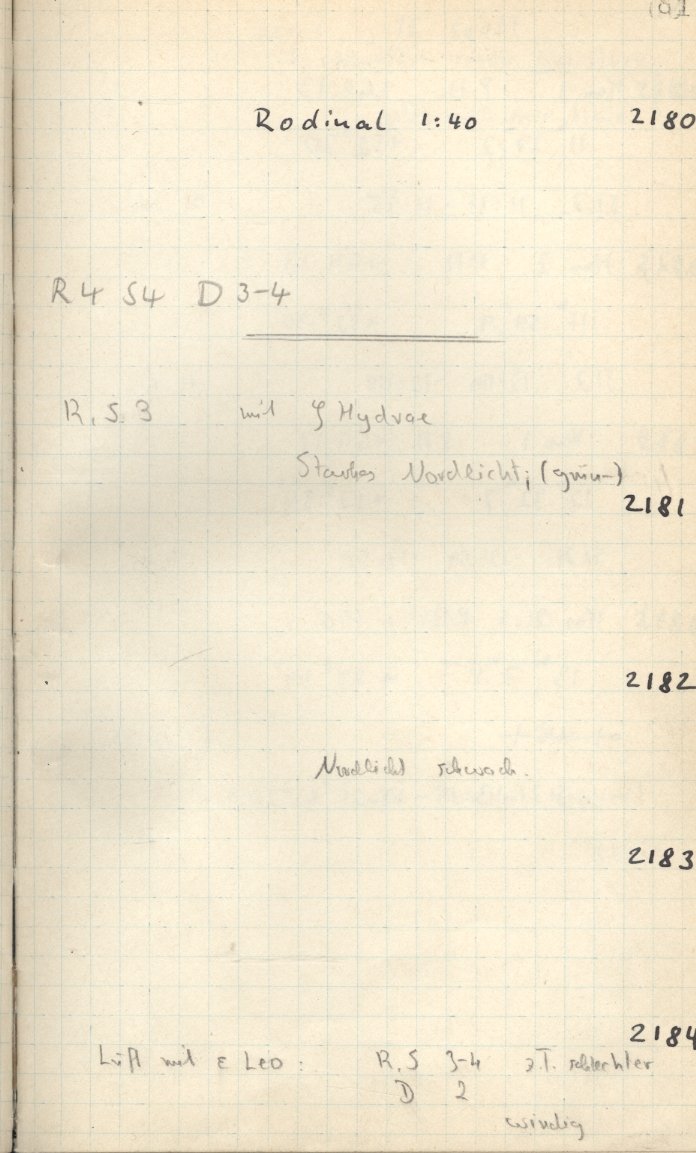 Rodinal 1:40 2180
R 4 S 4 D 3-4
R. S. 3 mit ζ Hydrae
Starkes Nordlicht; (grün-)
2181
2182
Nordlicht schwach.
2183
2184
Luft mit ε Leo: R. S 3-4 z.T. schlechter
D 2
windig